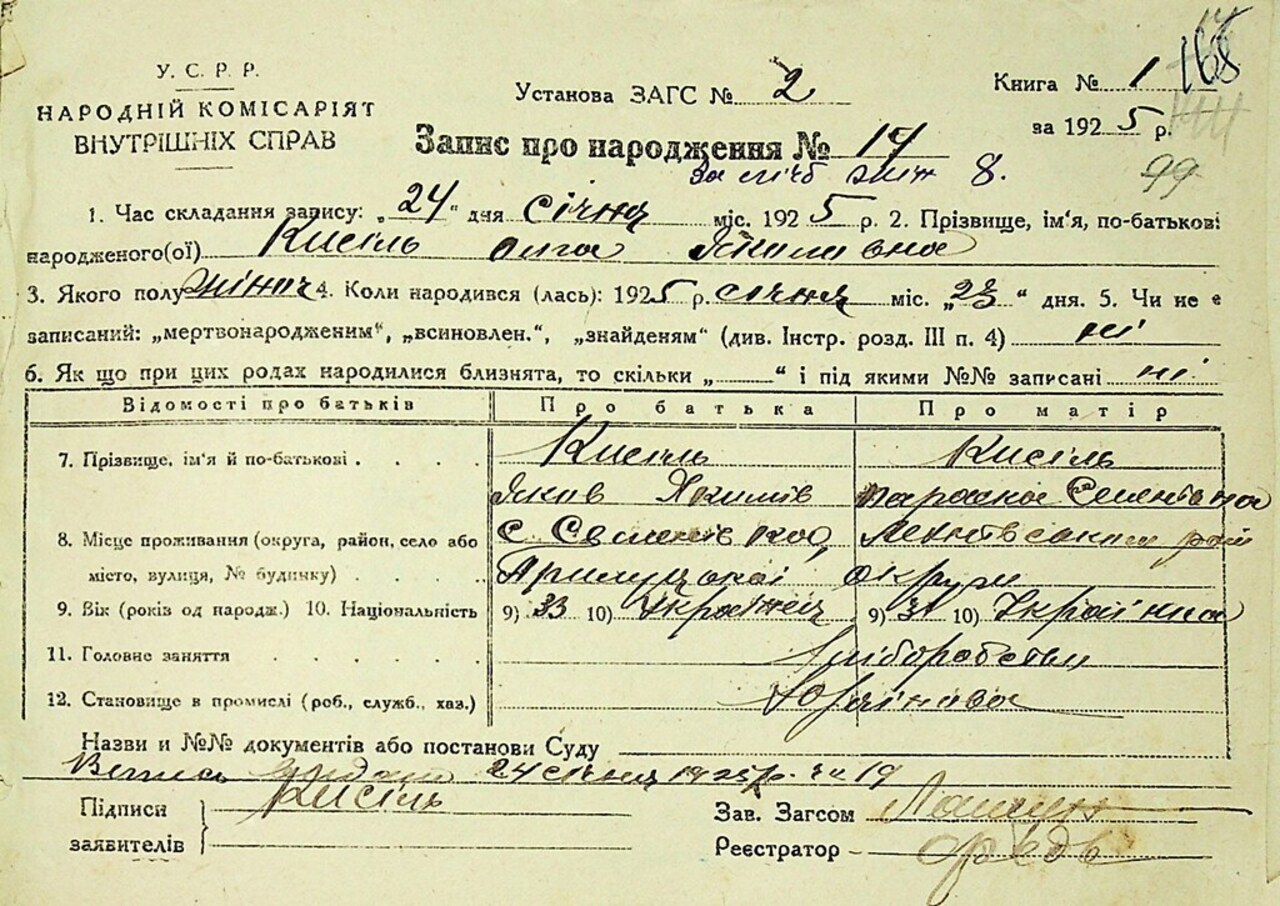 У. С. Р. Р.
НАРОДНІЙ КОМІСАРІЯТ
ВНУТРІШНІХ СПРАВ
Установа ЗАГС № 2
Книга № 1 168
за 1925 р.
99
Запис про народження № 19
8.
1. Час складання запису: „24“ дня січня міс. 1925 р. 2. Прізвище, ім'я, по-батькові
народженого(ої) Кисіль Якимовна
3. Якого полу жіноч 4. Коли народився (лась): 1925 р. січня міс. „23“ дня. 5. Чи не є
записаний: „мертвонародженим“, „всиновлен.“, „знайденям“ (див. Інстр. розд. III п. 4) ні
6. Як що при цих родах народилися близнята, то скільки „ “ і під якими №№ записані ні
Відомості про батьків Про батька Про матір
7. Прізвище, ім'я й по-батькові Кисіль Кисіль
Яків Якимів Параска Семенівна
8. Місце проживання (округа, район, село або
місто, вулиця, № будинку) Прилуцької округи
9. Вік (років од народж.) 10. Національність 9) 33 10) Українец 9) 31 10) Українка
11. Головне заняття Хліборобство
12. Становище в промислі (роб., служб., хаз.)
Назви и №№ документів або постанови Суду
24 січня 1925 р. за 19
Підписи Кисіль
заявителів
Зав. Загсом
Реєстратор